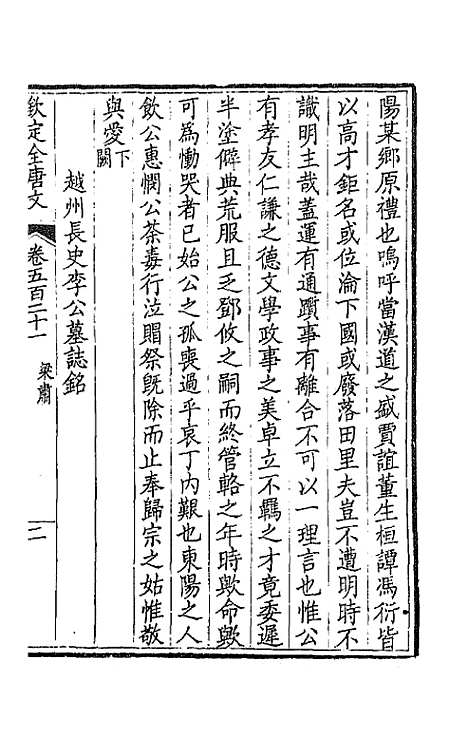 陽某鄉原禮也嗚呼當漢道之盛賈誼董生桓譚馮衍皆
以高才鉅名或位淪下國或廢落田里夫豈不遭明時不
識明主哉蓋運有通躓事有離合不可以一理言也惟公
有孝友仁謙之德文學政事之美卓立不羈之才竟委遲
半塗僻典荒服且乏鄧攸之嗣而終管輅之年時歟命歟
可為慟哭者已始公之孤喪過乎哀丁內艱也東陽之人
飲公惠憫公荼毒行泣賵祭旣除而止奉歸宗之姑惟敬
與愛下闕
越州長史李公墓誌銘
欽定全唐文 卷五百二十一 梁肅 二